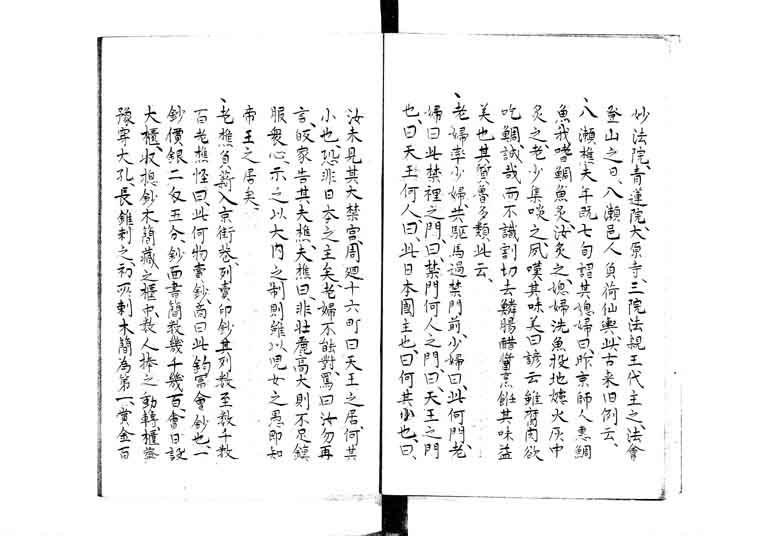 妙法院、青蓮院、大原寺、三院法親王代主之、法會
登山之日、八瀬邑人負荷仙輿、此古来旧例云、
、八瀬樵夫年既七旬、謂其媳婦曰、昨京師人惠鯛
魚、我嗜鯛魚、炙汝炙之、媳婦洗魚投地爐火灰中
炙之、老少集啖之、夙嘆其味美曰、諺云雖腐肉欲
吃鯛、誠哉、而不識割切去鱗腸醋醬烹飪其味益
美也、其質魯多類此云、
、老婦率少婦共駆馬過禁門前、少婦曰、此何門、老
婦曰、此禁裡之門、曰、禁門何人之門、曰、天王之門
也、曰、天王何人、曰、此日本國主也、曰、何其小也、曰、
汝未見其大禁宮、周廻十六町、曰、天王之居何其
小也、恐非日本之主矣、老婦不能對、罵曰、汝勿再
言、皈家告其夫樵夫、樵曰、非壮麗高大則不足鎮
服衆心、示之以大内之制則雖以児女之愚即知
帝王之居矣、
、老樵負薪入京街巷、列賣印鈔、其列数至数千数
百、老樵怪曰、此何物、賣鈔商曰、此鈞富會鈔也、一
鈔價銀二匁五分、鈔面書簡数幾千幾百、會日設
大櫃、収掲鈔木簡藏之櫃中、数人捧之動轉、櫃蓋
豫穿大孔、長錐刺之、初所刺木簡為第一、賞金百